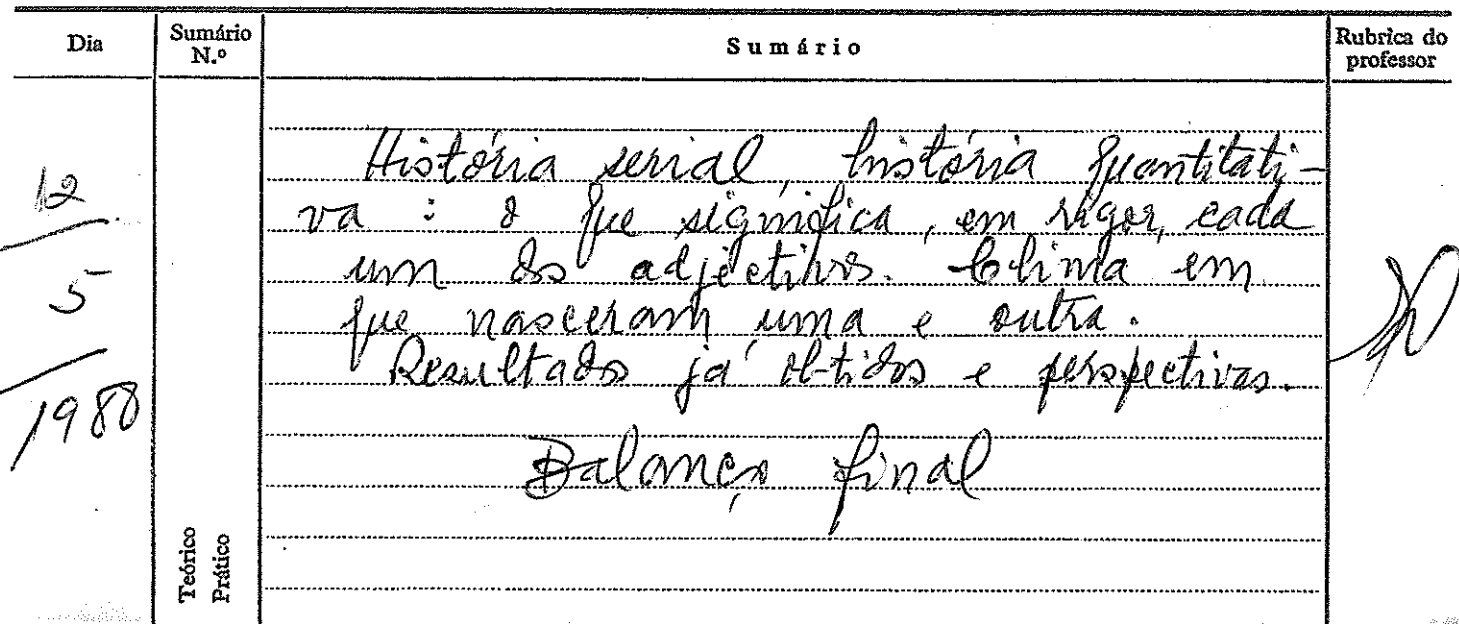 Dia
Sumário N.º
Sumário
Rubrica do professor
12
5
1988
História serial, história quantitati-
va : o que significa, em rigor, cada
um dos adjectivos. Clima em
que nasceram uma e outra.
Resultados já obtidos e perspectivas.
Balanço final
Teórico
Prático